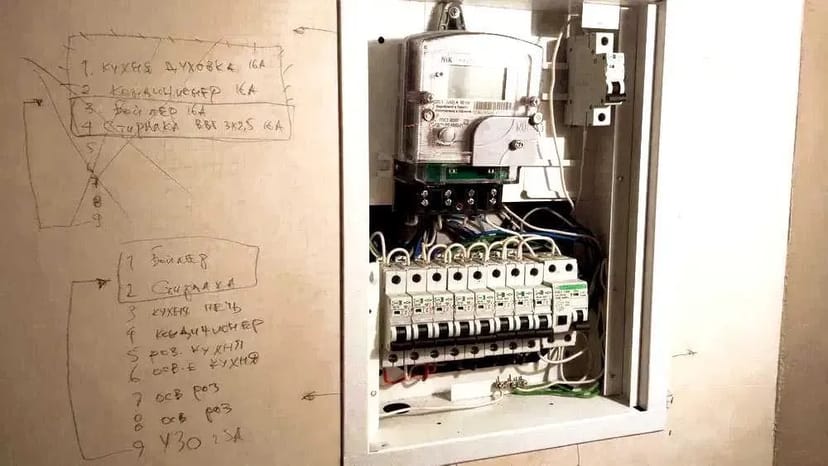 1. КУХНЯ ДУХОВКА 16А
2 КОНДИЦИОНЕР 16А
3. БОЙЛЕР 16А
4 СТИРАЛКА ВВГ 3х2,5 16А
5
6
7
8
9
1 БОЙЛЕР
2 СТИРАЛКА
3 КУХНЯ ПЕЧЬ
4 КОНДИЦИОНЕР
5 РОЗ. КУХНЯ
6 ОСВ-Е КУХНЯ
7 ОСВ РОЗ
8 ОСВ РОЗ
9 УЗО 25А
NiK